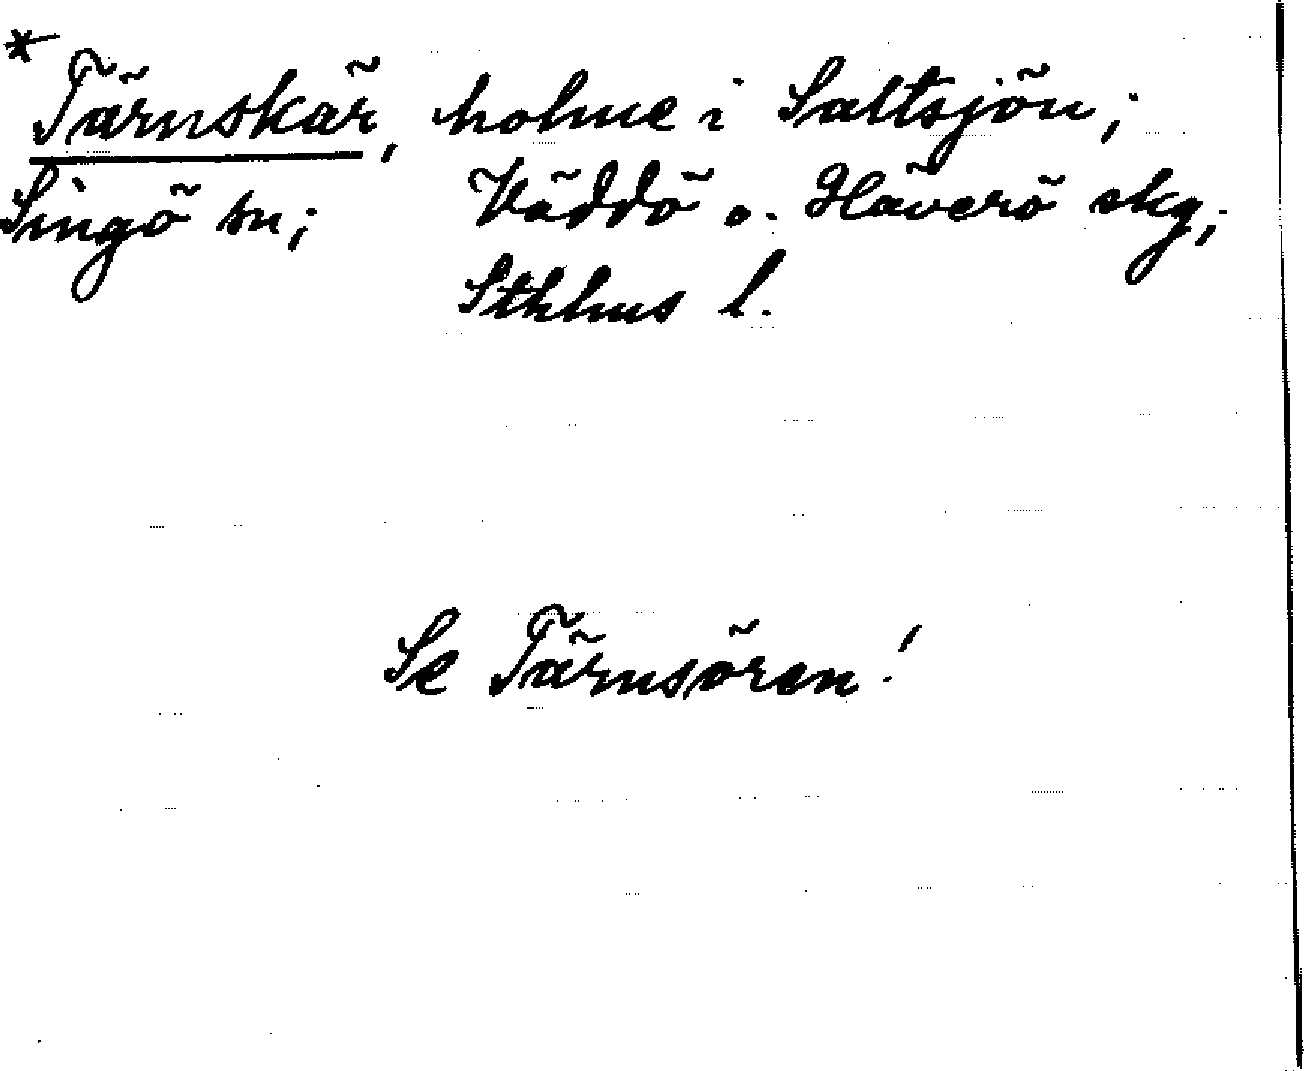 * Tärnskär, holme i Saltsjön;
Singö sn; Väddö o. Häverö skg;
Sthlms l.
Se Tärnsören!